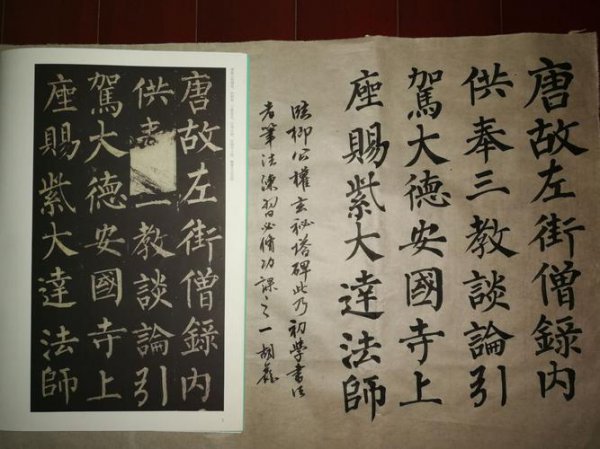 唐故左街僧錄內
供奉三教談論引
駕大德安國寺上
座賜紫大達法師
臨柳公權玄秘塔碑此乃初學書法
者筆法練習必修功課之一胡
唐故左街僧錄內
供奉三教談論引
駕大德安國寺上
座賜紫大達法師